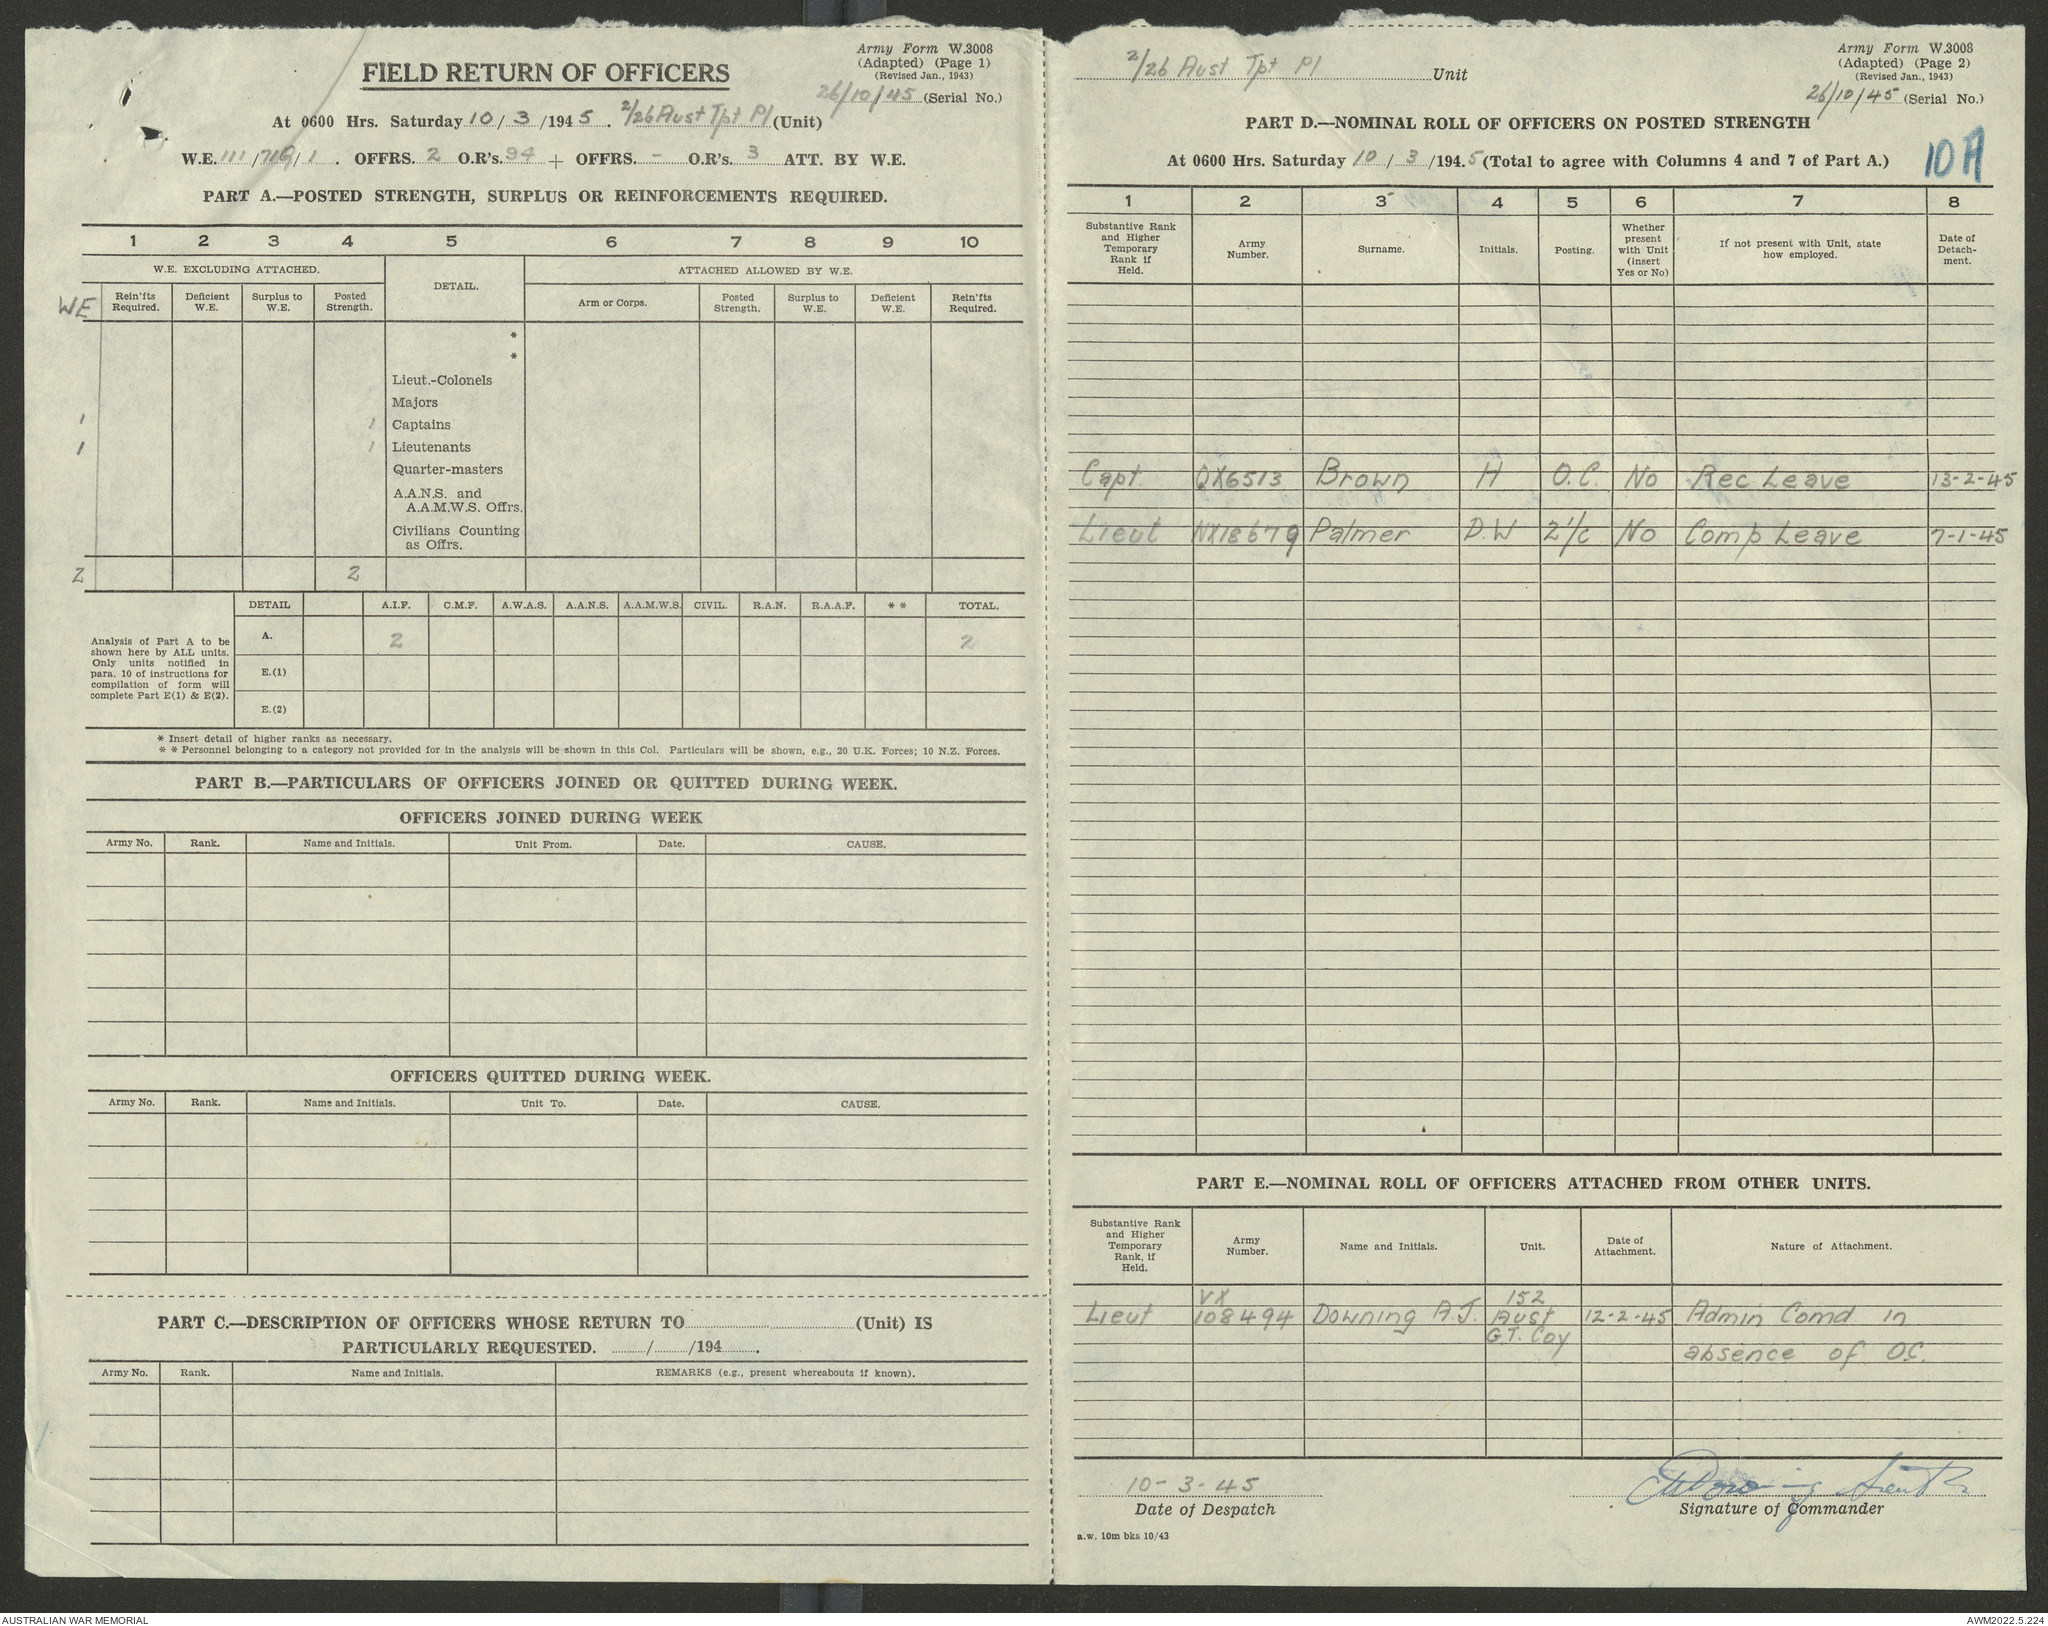 Army Form W.3008
(Adapted) (Page 1)
(Revised Jan., 1943)
FIELD RETURN OF OFFICERS
26/10/45 (Serial No.)
At 0600 Hrs. Saturday 10/3/1945. 2/26 Aust Tpt Pl (Unit)
W.E. 111/71G/1. OFFRS. 2 O.R's. 94 + OFFRS. - O.R's. 3 ATT. BY W.E.
PART A.—POSTED STRENGTH, SURPLUS OR REINFORCEMENTS REQUIRED.
1 2 3 4 5 6 7 8 9 10
W.E. EXCLUDING ATTACHED. DETAIL. ATTACHED ALLOWED BY W.E.
WE Rein'fts Required. Deficient W.E. Surplus to W.E. Posted Strength. Arm or Corps. Posted Strength. Surplus to W.E. Deficient W.E. Rein'fts Required.
*
*
Lieut.-Colonels
Majors
1 1 Captains
1 1 Lieutenants
Quarter-masters
A.A.N.S. and
A.A.M.W.S. Offrs.
Civilians Counting
as Offrs.
2 2
DETAIL A.I.F. C.M.F. A.W.A.S. A.A.N.S. A.A.M.W.S. CIVIL. R.A.N. R.A.A.F. * * TOTAL.
Analysis of Part A to be
shown here by ALL units.
Only units notified in
para. 10 of instructions for
compilation of form will
complete Part E(1) & E(2).
A. 2 2
E.(1)
E.(2)
* Insert detail of higher ranks as necessary.
* * Personnel belonging to a category not provided for in the analysis will be shown in this Col. Particulars will be shown, e.g., 20 U.K. Forces; 10 N.Z. Forces.
PART B.—PARTICULARS OF OFFICERS JOINED OR QUITTED DURING WEEK.
OFFICERS JOINED DURING WEEK
Army No. Rank. Name and Initials. Unit From. Date. CAUSE.
OFFICERS QUITTED DURING WEEK.
Army No. Rank. Name and Initials. Unit To. Date. CAUSE.
PART C.—DESCRIPTION OF OFFICERS WHOSE RETURN TO (Unit) IS
PARTICULARLY REQUESTED. / /194 .
Army No. Rank. Name and Initials. REMARKS (e.g., present whereabouts if known).
Army Form W.3008
2/26 Aust Tpt Pl Unit
(Adapted) (Page 2)
(Revised Jan., 1943)
26/10/45 (Serial No.)
PART D.—NOMINAL ROLL OF OFFICERS ON POSTED STRENGTH
At 0600 Hrs. Saturday 10/3/1945 (Total to agree with Columns 4 and 7 of Part A.)
10A
1 2 3 4 5 6 7 8
Substantive Rank and Higher Temporary Rank if Held. Army Number. Surname. Initials. Posting. Whether present with Unit (insert Yes or No) If not present with Unit, state how employed. Date of Detachment.
Capt. QX6513 Brown H O.C. No Rec Leave 13-2-45
Lieut NX18679 Palmer D.W 2i/c No Comp Leave 7-1-45
PART E.—NOMINAL ROLL OF OFFICERS ATTACHED FROM OTHER UNITS.
Substantive Rank and Higher Temporary Rank, if Held. Army Number. Name and Initials. Unit. Date of Attachment. Nature of Attachment.
VX 152
Lieut 108494 Downing A.J. Aust 12-2-45 Admin Comd in
G.T. Coy
absence of O.C.
10-3-45
Date of Despatch
Signature of Commander
a.w. 10m bks 10/43
AUSTRALIAN WAR MEMORIAL
AWM2022.5.224